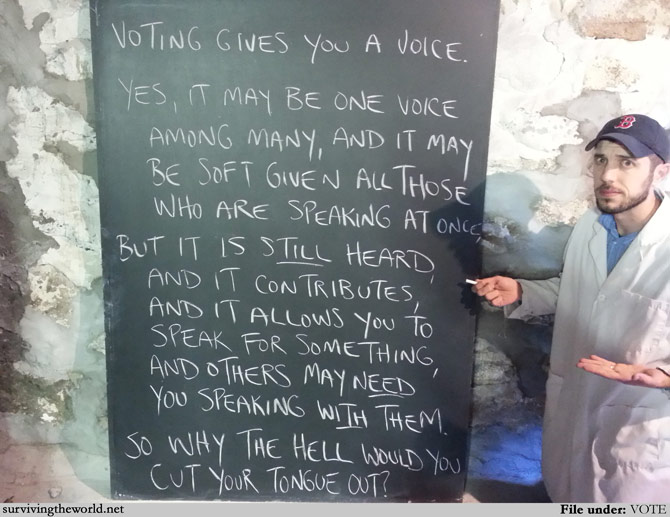 VOTING GIVES YOU A VOICE.
YES, IT MAY BE ONE VOICE
AMONG MANY, AND IT MAY
BE SOFT GIVEN ALL THOSE
WHO ARE SPEAKING AT ONCE,
BUT IT IS STILL HEARD,
AND IT CONTRIBUTES,
AND IT ALLOWS YOU TO
SPEAK FOR SOMETHING,
AND OTHERS MAY NEED
YOU SPEAKING WITH THEM.
SO WHY THE HELL WOULD YOU
CUT YOUR TONGUE OUT?
B
survivingtheworld.net
File under: VOTE